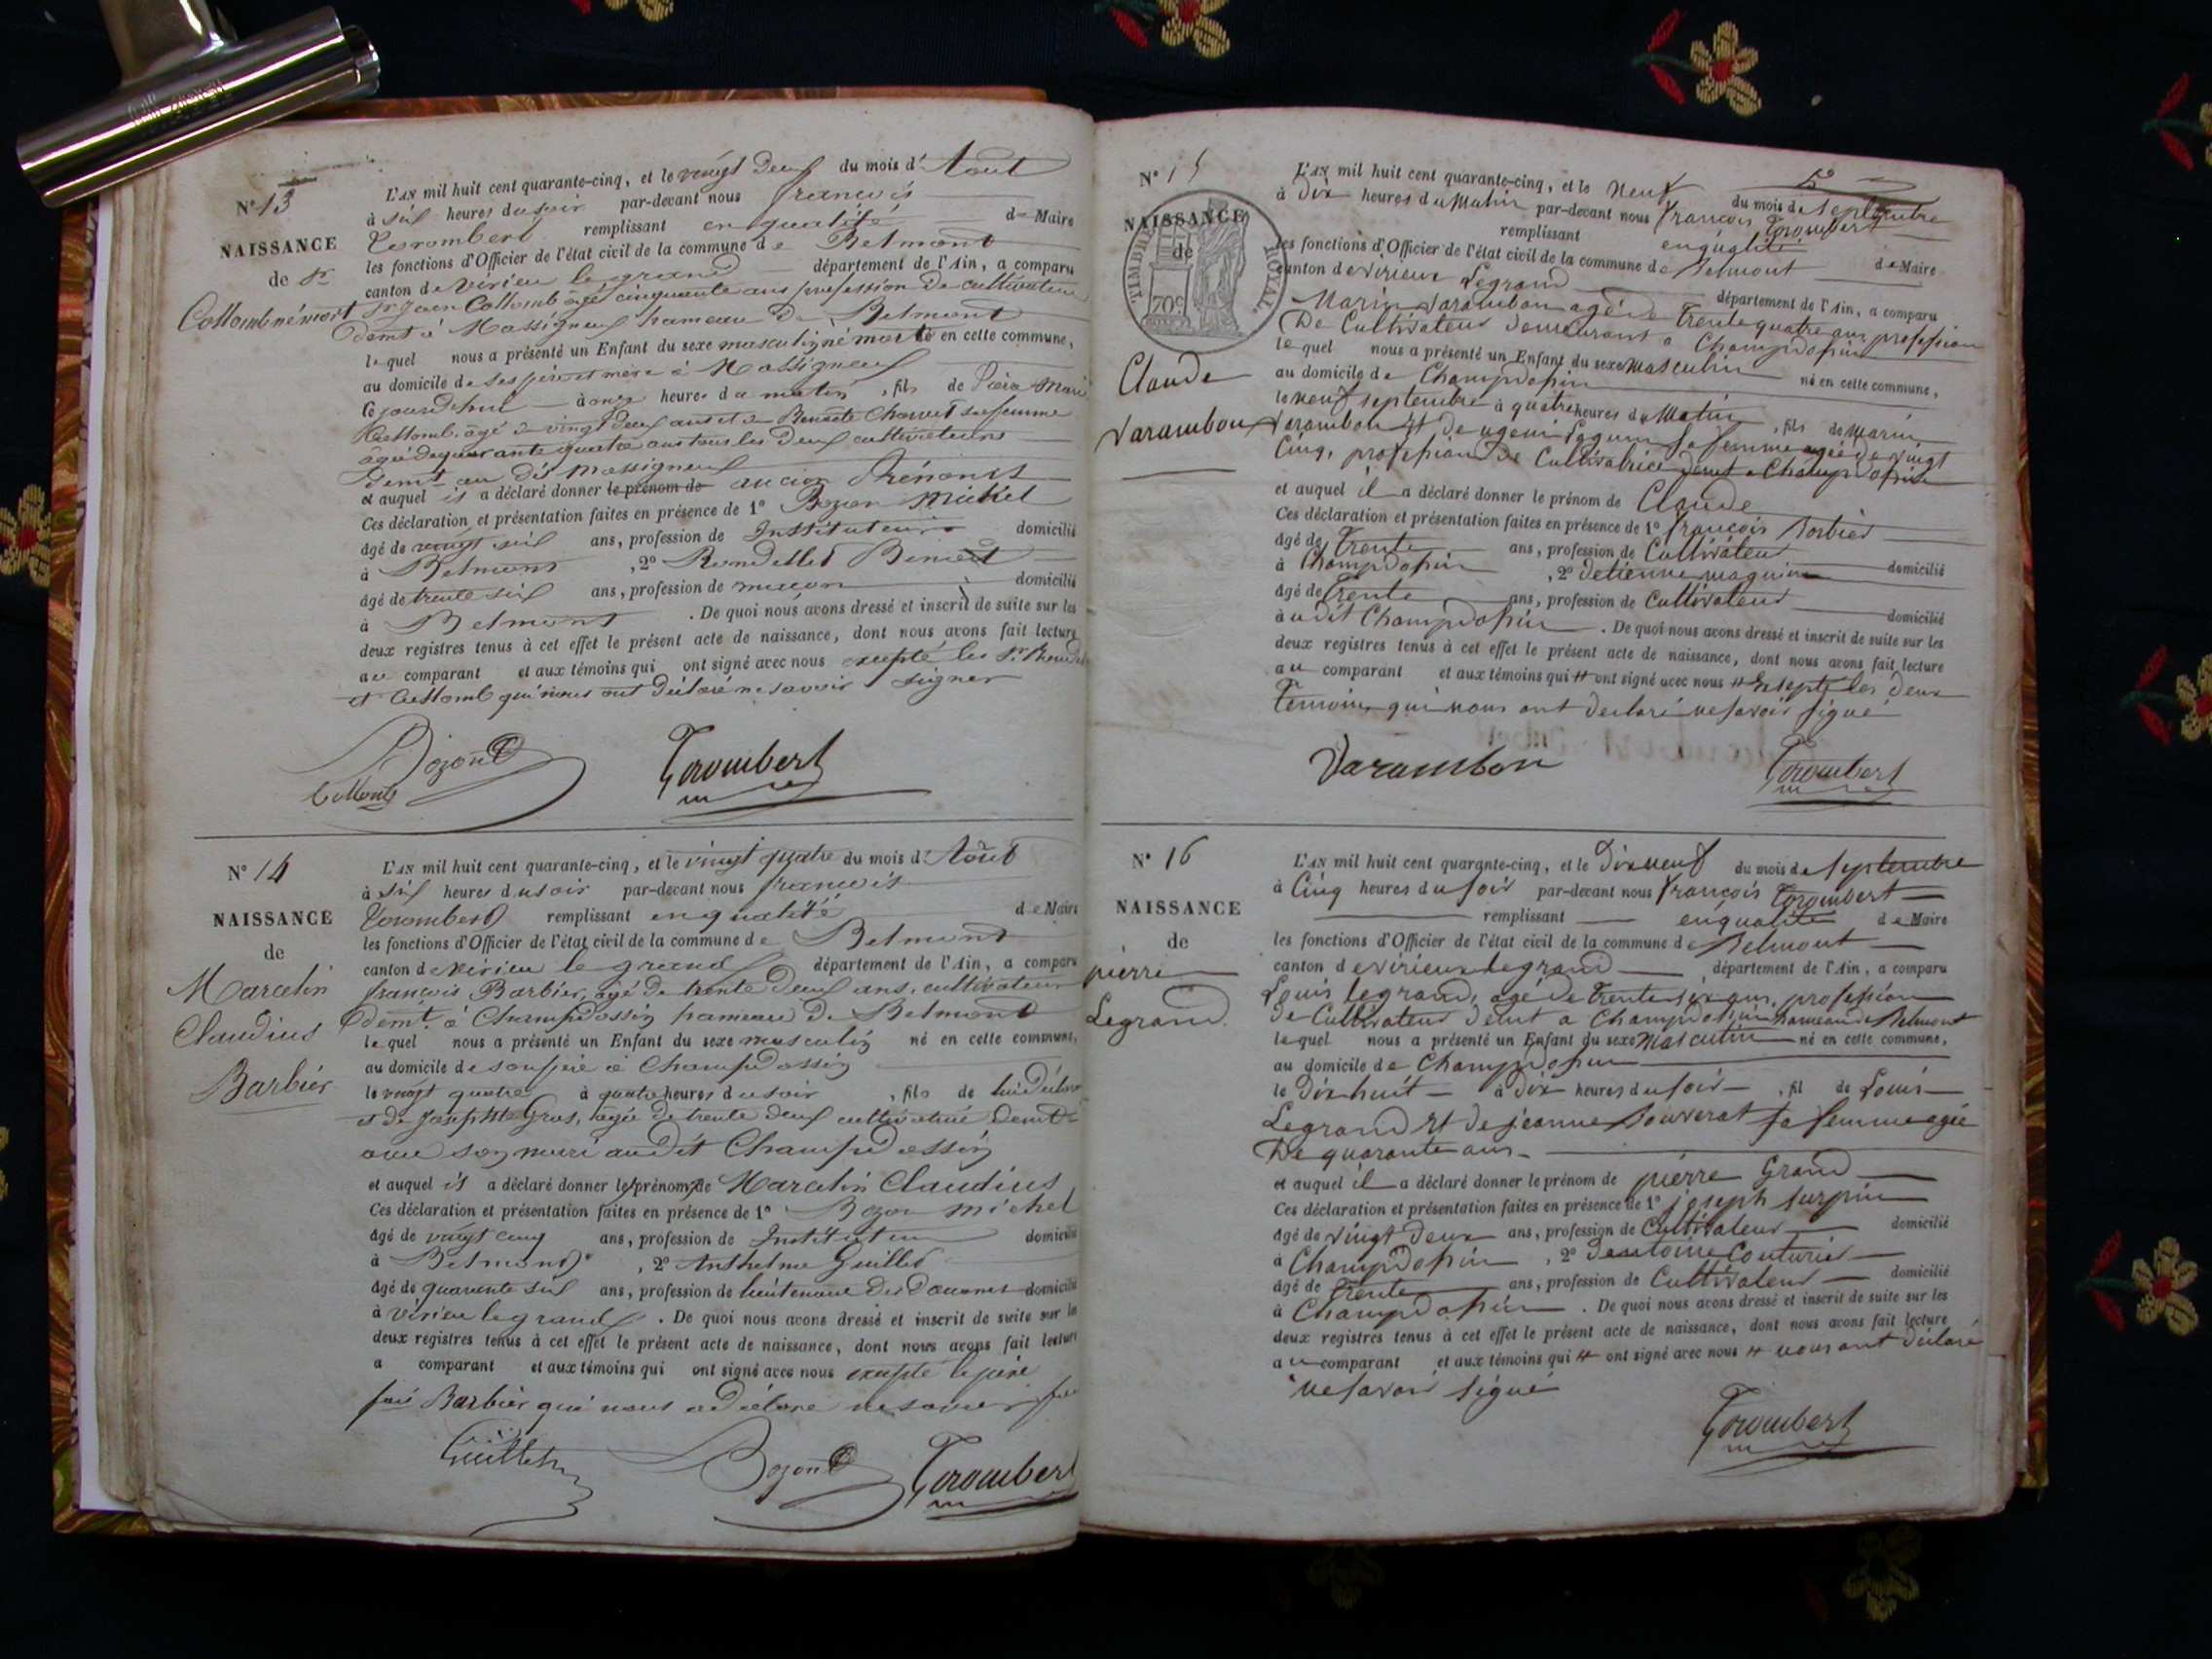 N° 13
NAISSANCE
de Sr
Collomb né mort
L'AN mil huit cent quarante-cinq, et le vingt deux du mois d'Août
à six heures du soir par-devant nous françois
Torombert remplissant en qualité de Maire
les fonctions d'Officier de l'état civil de la commune de Belmont
canton de Virieu le grand département de l'Ain, a comparu
Sr Jean Collomb âgé cinquante ans profession de cultivateur
demt à Massigneux hameau de Belmont
lequel nous a présenté un Enfant du sexe masculin né mort né en cette commune,
au domicile de ses père et mère à Massigneux
le jourd'hui à onze heures du matin, fils de Pière Marie
Collomb, âgé de vingt deux ans et de Benoite Chauvet sa femme
âgée de quarante quatre ans tous les deux cultivateurs
demt au dit Massigneux
et auquel il a déclaré donner le prénom de aucion Prénoms
Ces déclaration et présentation faites en présence de 1° Bozon Michel
âgé de vingt six ans, profession de Instituteur domicilié
à Belmont, 2° Rondellet Benoit
âgé de trente six ans, profession de maçon domicilié
à Belmont. De quoi nous avons dressé et inscrit de suite sur les
deux registres tenus à cet effet le présent acte de naissance, dont nous avons fait lecture
au comparant et aux témoins qui ont signé avec nous excepté les Sr Rondel
et Collomb qui nous ont déclaré ne savoir signer
Bozond
Collomb
Torombert
N° 14
NAISSANCE
de
Marcelin
Claudius
Barbier
L'AN mil huit cent quarante-cinq, et le vingt quatre du mois d'Août
à six heures du soir par-devant nous françois
Torombert remplissant en qualité de Maire
les fonctions d'Officier de l'état civil de la commune de Belmont
canton de Virieu le grand département de l'Ain, a comparu
françois Barbier, âgé de trente deux ans, cultivateur
demt. à Champdossin hameau de Belmont
lequel nous a présenté un Enfant du sexe masculin né en cette commune,
au domicile de son père à Champdossin
le vingt quatre à quatre heures du soir, fils de lui déclarant
et de Josephte Gros, âgée de trente deux cultivatrice demt
avec son mari au dit Champdossin
et auquel il a déclaré donner les prénoms de Marcelin Claudius
Ces déclaration et présentation faites en présence de 1° Bozon Michel
âgé de vingt cinq ans, profession de Instituteur domicilié
à Belmont, 2° Anthelme Guillet
âgé de quarante six ans, profession de lieutenant des Douanes domicilié
à Virieu le grand. De quoi nous avons dressé et inscrit de suite sur les
deux registres tenus à cet effet le présent acte de naissance, dont nous avons fait lecture
a comparant et aux témoins qui ont signé avec nous excepté le père
Barbier qui nous a déclaré ne savoir
Guillet
Bozond
Torombert
N° 15
NAISSANCE
de
TIMBRE ROYAL
70c.
Claude
Varambon
L'AN mil huit cent quarante-cinq, et le neuf du mois de septembre
à Dix heures du Matin par-devant nous françois Torombert
remplissant en qualité de Maire
les fonctions d'Officier de l'état civil de la commune de Belmont
canton de virieux Legrand département de l'Ain, a comparu
Marin Varambon agé de Trente quatre ans profession
De Cultivateur demeurant a Champdossin
lequel nous a présenté un Enfant du sexe Masculin né en cette commune,
au domicile de Champdossin
le neuf septembre à quatre heures du Matin, fils de marin
Varambon Et de ugenie Poguin sa femme agée de vingt
Cinq, profession de Cultivatrice demt a Champdossin
et auquel il a déclaré donner le prénom de Claude
Ces déclaration et présentation faites en présence de 1° françois Borbier
âgé de Trente ans, profession de Cultivateur domicilié
à Champdossin, 2° detienne maguin
âgé de Trente ans, profession de Cultivateur domicilié
à udit Champdossin. De quoi nous avons dressé et inscrit de suite sur les
deux registres tenus à cet effet le présent acte de naissance, dont nous avons fait lecture
au comparant et aux témoins qui # ont signé avec nous # Excepté les deux
Temoins qui nous ont declaré ne savoir signé
Varambon
Torombert
N° 16
NAISSANCE
de
pierre
Legrand
L'AN mil huit cent quarante-cinq, et le Dix neuf du mois de septembre
à Cinq heures du soir par-devant nous françois Torombert
remplissant en qualité de Maire
les fonctions d'Officier de l'état civil de la commune de Belmont
canton de virieux legrand département de l'Ain, a comparu
Louis legrand, agé de Trente six ans, profession
de Cultivateur demt a Champdossin hameau de Belmont
lequel nous a présenté un Enfant du sexe Masculin né en cette commune,
au domicile de Champdossin
le Dix huit à Dix heures du soir, fil de Louis
Legrand Et de jeanne Bouverat sa femme agée
De quarante ans
et auquel il a déclaré donner le prénom de pierre Grand
Ces déclaration et présentation faites en présence de 1° joseph surpin
âgé de vingt Deux ans, profession de Cultivateur domicilié
à Champdossin, 2° dentoine Couturier
âgé de Trente ans, profession de Cultivateur domicilié
à Champdossin. De quoi nous avons dressé et inscrit de suite sur les
deux registres tenus à cet effet le présent acte de naissance, dont nous avons fait lecture
au comparant et aux témoins qui # ont signé avec nous # nous ont déclaré
ne savoir signé
Torombert